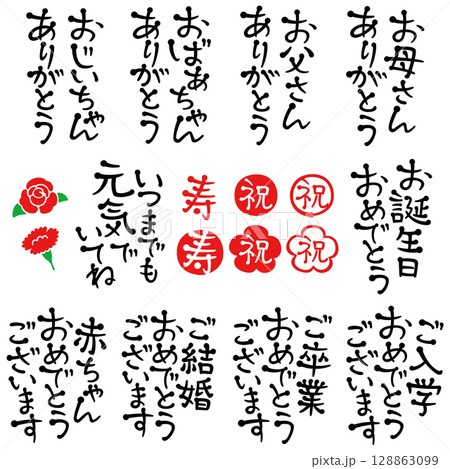 お母さん
ありがとう
お父さん
ありがとう
おばあちゃん
ありがとう
おじいちゃん
ありがとう
お誕生日
おめでとう
祝
祝
寿
祝
祝
寿
いつまでも
元気で
いてね
ご入学
おめでとう
ございます
ご卒業
おめでとう
ございます
ご結婚
おめでとう
ございます
赤ちゃん
おめでとう
ございます
pixta.jp - 128863099